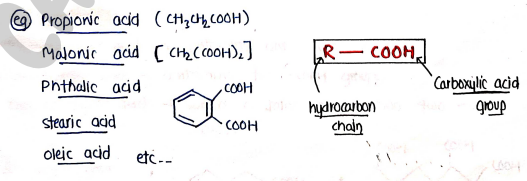 eg Propionic acid (CH₃CH₂COOH)
Malonic acid [CH₂(COOH)₂]
Phthalic acid
COOH
COOH
stearic acid
oleic acid etc--
R — COOH
hydrocarbon
chain
Carboxylic acid
group